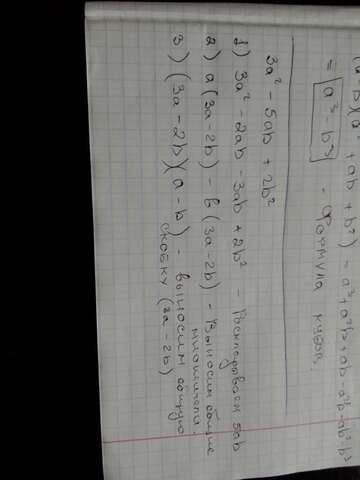 (a-b)(a² + ab + b²) = a³ + a²b + ab² - a²b - ab² - b³
= a³ - b³ - Формула кубов.
3a² - 5ab + 2b²
1) 3a² - 2ab - 3ab + 2b² - Раскладываем 5ab
2) a(3a - 2b) - b(3a - 2b) - Выносим общие
множители.
3) (3a - 2b)(a - b) - выносим общую
скобку (3a - 2b)